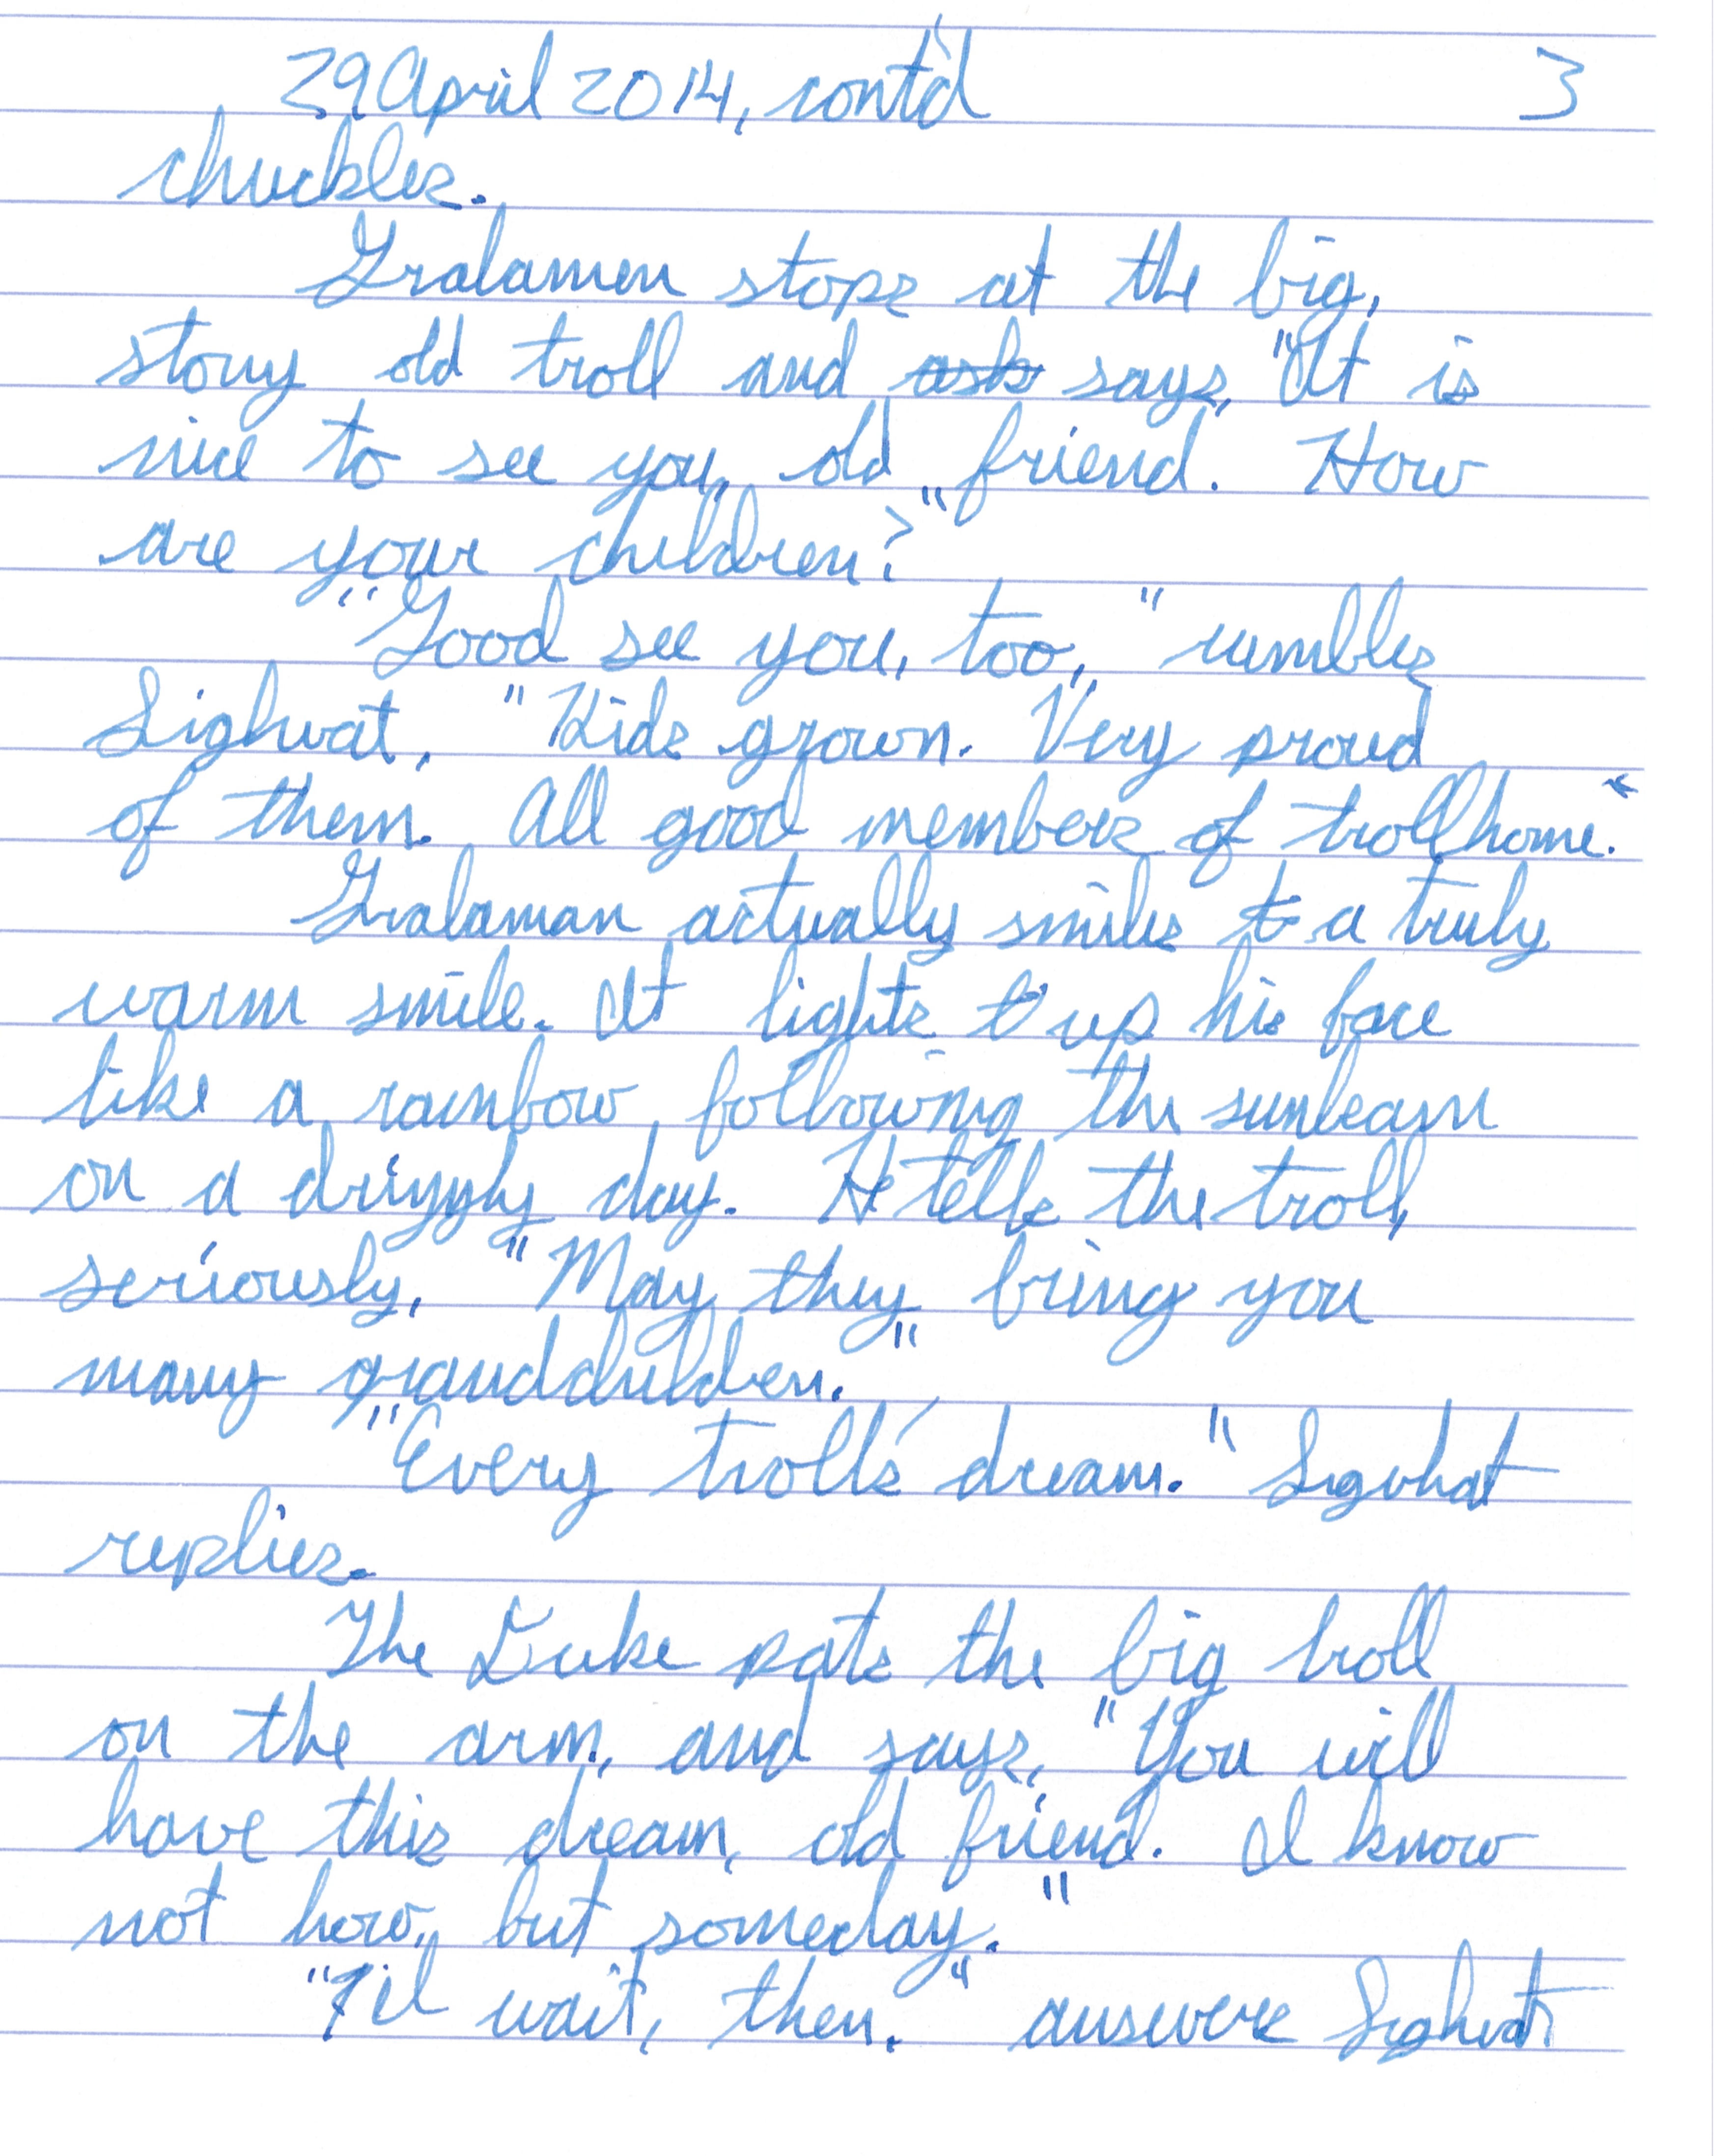 29 April 2014, cont'd 3
chuckles.
Gralamen stops at the big,
stony old troll and ask says, "It is
nice to see you, old friend. How
are your children?"
"Good see you, too," rumbles
Sighvat, "Kids grown. Very proud
of them. All good members of trollhome."
Gralaman actually smiles to a truly
warm smile. It lights t up his face
like a rainbow following the sunbeam
on a drizzly day. He tells the troll,
seriously, "May they bring you
many grandchildren."
"Every troll's dream." Sigvhat
replies.
The Duke pats the big troll
on the arm, and says, "You will
have this dream, old friend. I know
not how, but someday."
"I'll wait, then." answers Sighvat